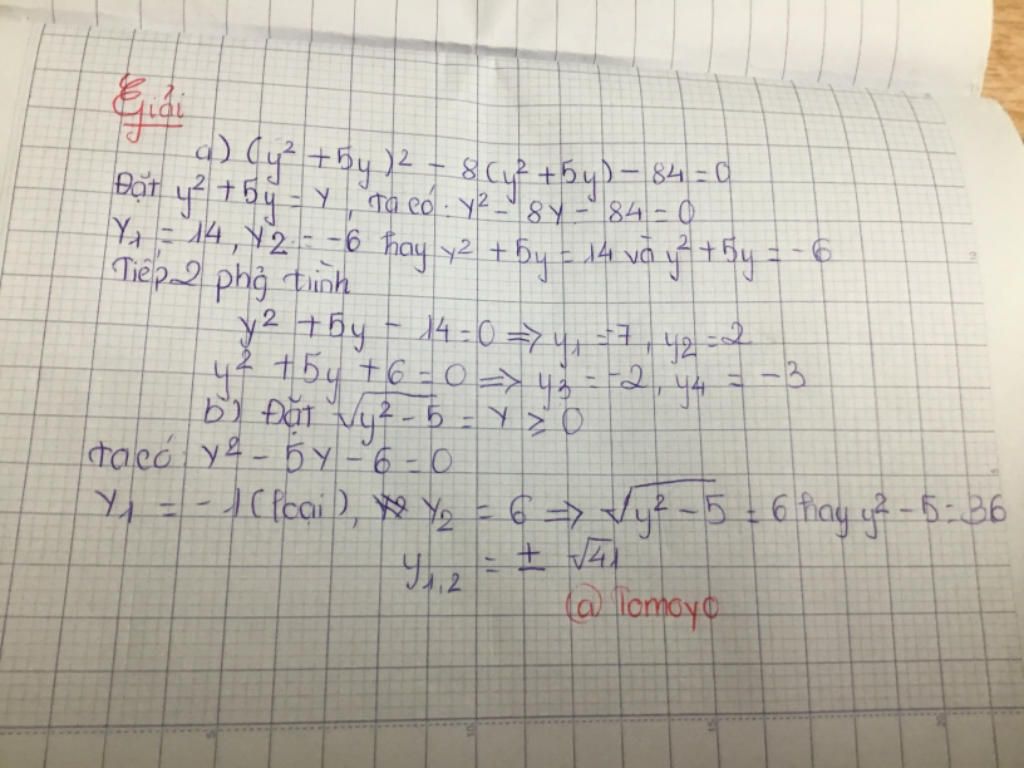 Giải
a) (y² + 5y)² - 8(y² + 5y) - 84 = 0
Đặt y² + 5y = Y, ta có: Y² - 8Y - 84 = 0
Y₁ = 14, Y₂ = -6 hay y² + 5y = 14 và y² + 5y = -6
Tiếp 2 phg tiình
y² + 5y - 14 = 0 ⇒ y₁ = -7, y₂ = 2
y² + 5y + 6 = 0 ⇒ y₃ = -2, y₄ = -3
b) Đặt √(y² - 5) = Y ≥ 0
ta có: Y² - 5Y - 6 = 0
Y₁ = -1 (loại), Y₂ = 6 ⇒ √(y² - 5) = 6 hay y² - 5 = 36
y₁,₂ = ± √41
@ Tomoyo